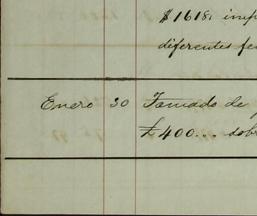 $1618. imp
diferentes fe
Enero 30 Tomado de
£400... sob